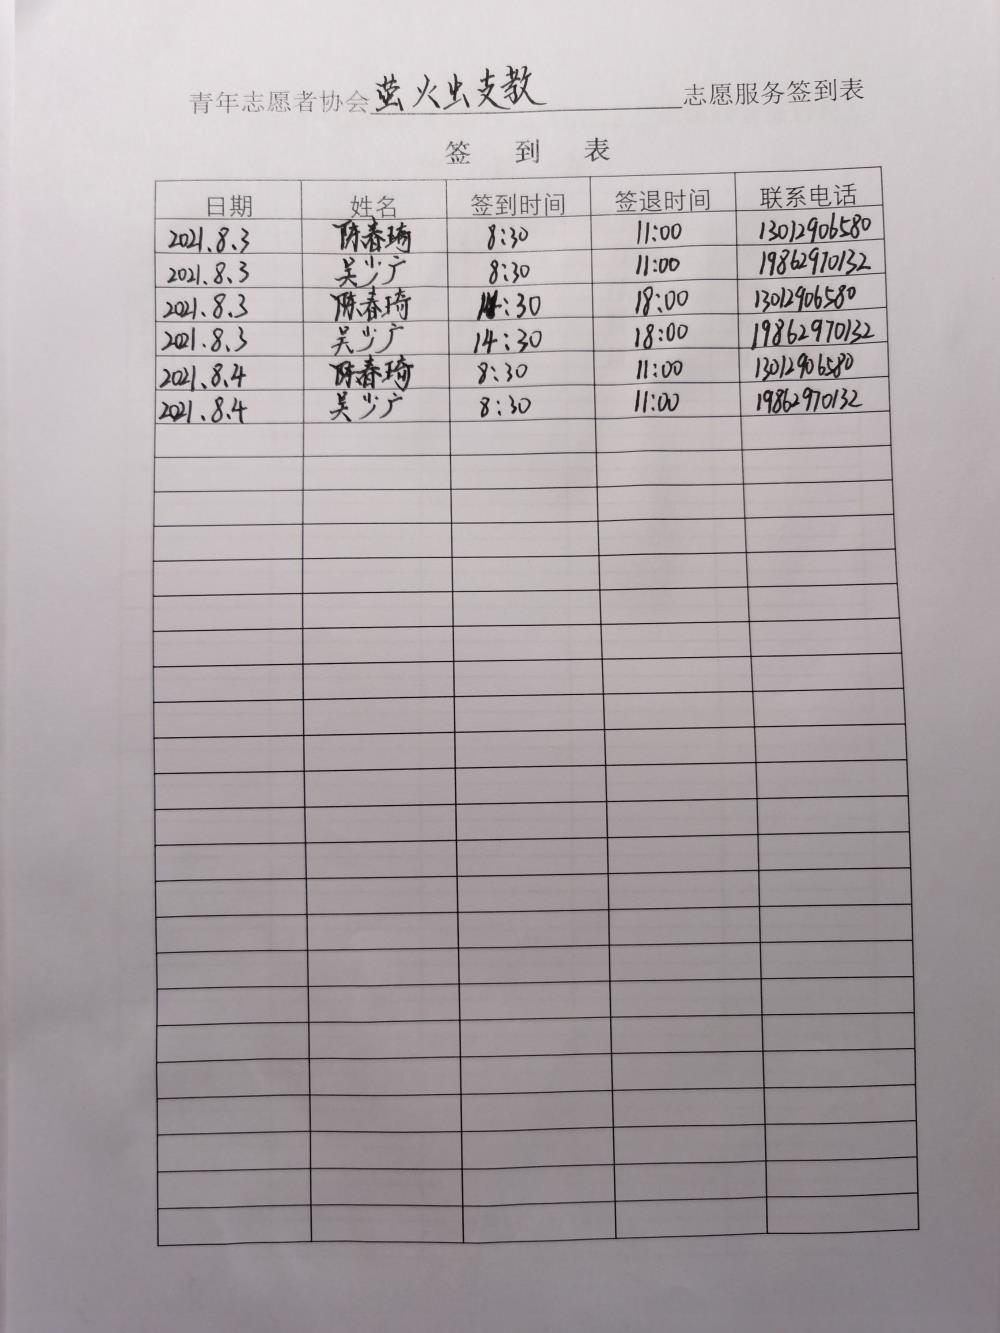 青年志愿者协会萤火虫支教志愿服务签到表
签 到 表
日期 姓名 签到时间 签退时间 联系电话
2021.8.3 陈春琦 8:30 11:00 13012906580
2021.8.3 吴少广 8:30 11:00 19862970132
2021.8.3 陈春琦 14:30 18:00 13012906580
2021.8.3 吴少广 14:30 18:00 19862970132
2021.8.4 陈春琦 8:30 11:00 13012906580
2021.8.4 吴少广 8:30 11:00 19862970132